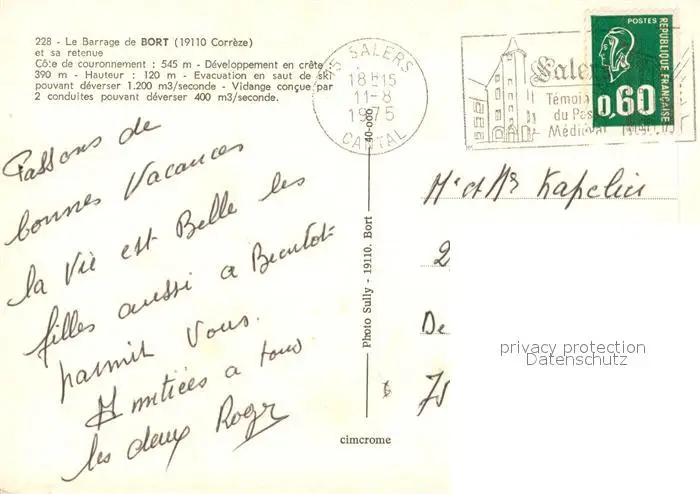 228 - Le Barrage de BORT (19110 Corrèze)
et sa retenue
Côte de couronnement : 545 m - Développement en crête :
390 m - Hauteur : 120 m - Evacuation en saut de ski
pouvant déverser 1.200 m3/seconde - Vidange conçue par
2 conduites pouvant déverser 400 m3/seconde.
Passons de
bonnes Vacances
la Vie est Belle les
filles aussi a Bientot
parmit Vous.
Amitiées a tous
les deux Roger
SALERS
18H15
11-8
1975
CANTAL
Salers
Témoin
du Pas
Médiéval
POSTES
REPUBLIQUE FRANÇAISE
0,60
40-000
Photo Sully - 19110. Bort
cimcrome
Mr et Mr Kapelier
2
De
75
privacy protection
Datenschutz